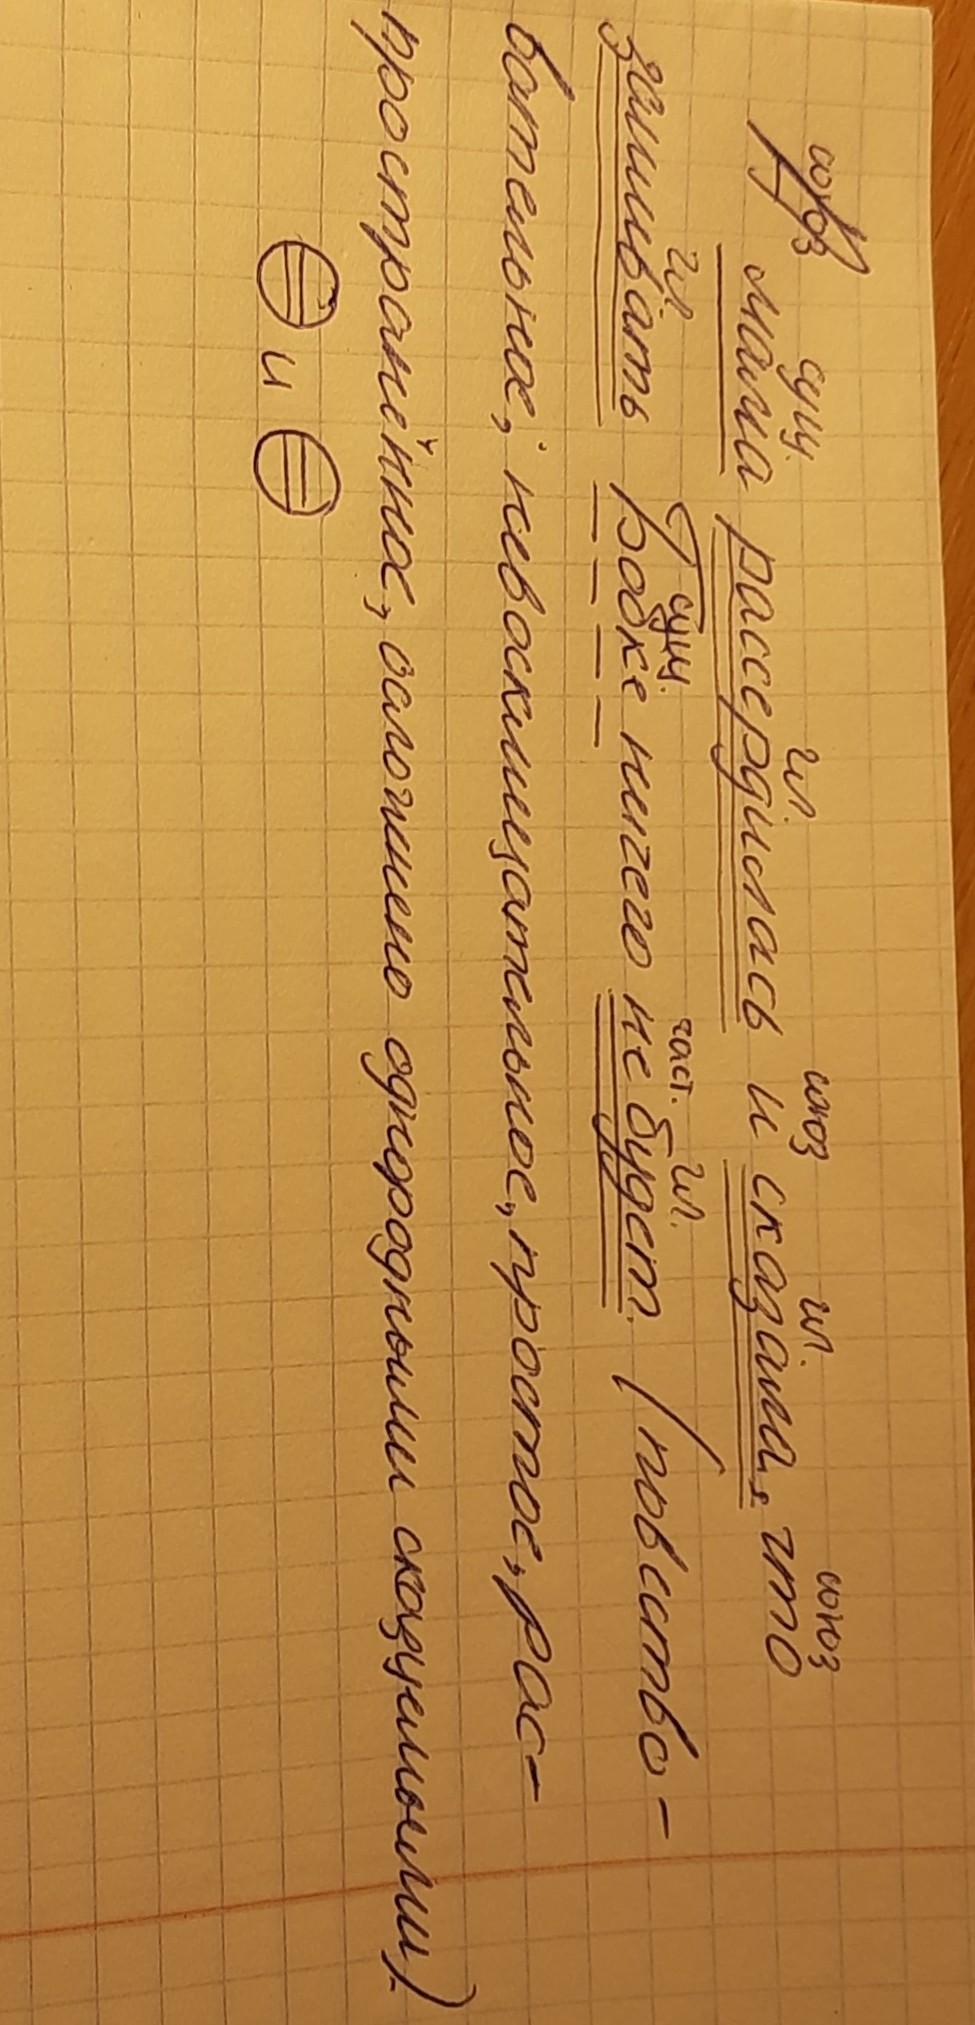 союз сущ. гл. союз гл. союз
Мама рассердилась и сказала, что
гл. сущ. част. гл.
зашивать Вовке ничего не будет. (повество-
вательное, невосклицательное, простое, рас-
пространённое, осложнено однородными сказуемыми)
и